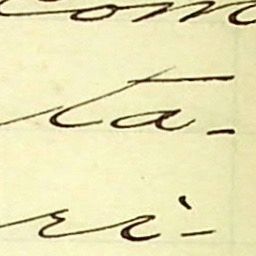 com
ta-
ri-